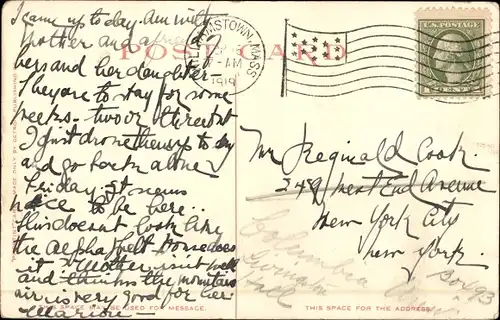 I came up to day. Am with
Mother and a friend of
hers and her daughter.
They are to stay for some
weeks - two or three but
I just drove them up to day
and go back alone
Friday. It seems
nice to be here..
This doesn't look like
the
it. Mother isn't well
and thinks the mountain
air is very good for her
Marion
POST CARD
WILLIAMSTOWN, MASS.
SEP
2
7-AM
1919
U.S. POSTAGE
Mr Reginald Cook.
349 West End Avenue
New York City
New York.
Columbia
Livingston
Hall
Box 93
SPACE MAY BE USED FOR MESSAGE.
THIS SPACE FOR THE ADDRESS.